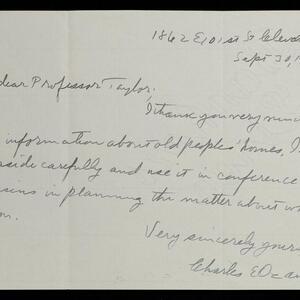 1862 E 101 st St Cleve
Sept 30, 1
dear Professor Taylor.
I thank you very muc
information about old peoples' homes. I
side carefully and use it in conference
in planning the matter about w
Very sincerely your
Charles E